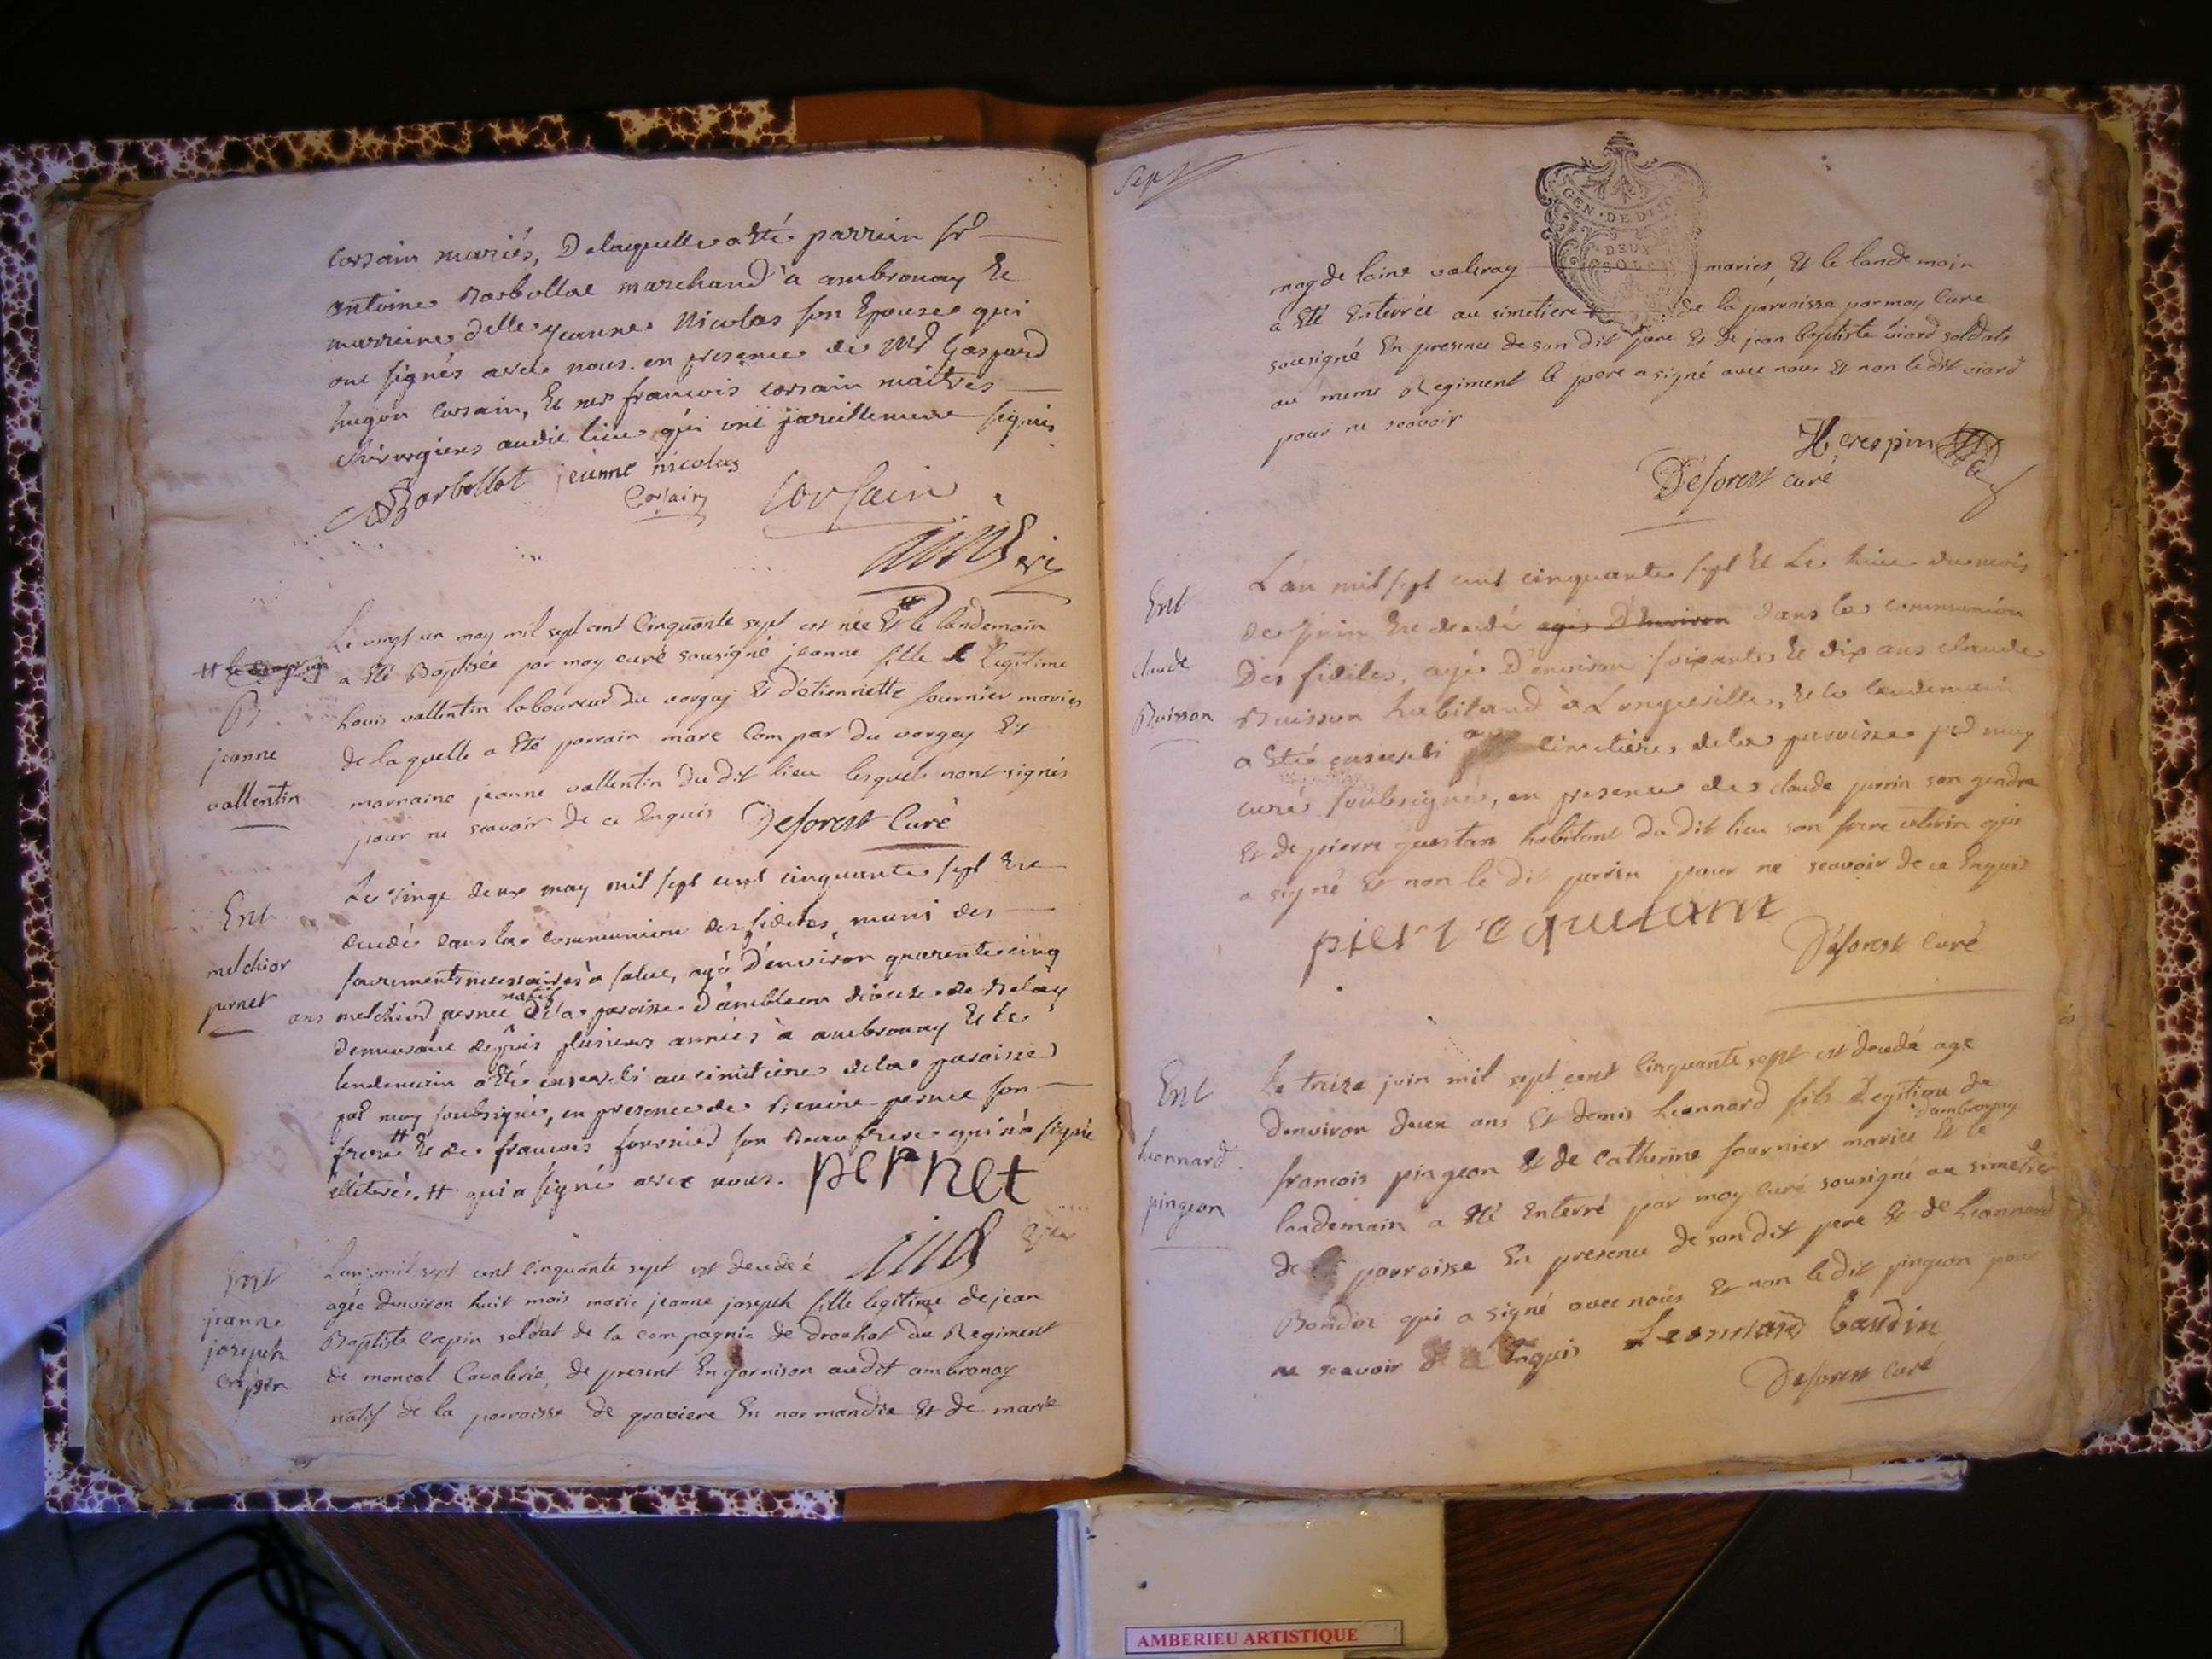 Corsain mariés, De laquelle a Eté parrein sr
antoine Barbollat marchand à ambronay Et
marreine Delle jeanne Nicolas son Epouse qui
ont signés avec nous. en presence de Mr Gaspard
hugon Corsain, Et françois Corsain maitres
chirurgiens audit lieu qui ont pareillement signés
Barbollat jeanne nicolas
Corsain Corsain

Le vingt un may mil sept cent Cinquante sept est née Et le landemain
a Eté Baptisée par moy curé sousigné jeanne fille Legitime
B.
jeanne
vallentin
Louis vallentin laboureur du vorgey Et d'étiennette fournier mariés
de laquelle a Eté parrain marc Compar du vorgey Et
marraine jeanne vallentin du dit lieu lesquels n'ont signés
pour ne scavoir de ce Enquis Deforest Curé
Ent
melchior
pernet
Le vingt deux may mil sept cent cinquante sept Est
decedé dans la communion des fideles, muni des
sacrements necessaires à salut, agé D'environ quarente cinq
ans melchiord pernet natif de la paroisse d'ambleon diocese de Belay
Demeurant depuis plusieurs années à ambronay Et le
lendemain a Eté enseveli au cimitiere de la paroisse
par moy soubsigné, en presence de pernet son
frere # Et de francois fournier son Beaufrere qui n'a signé
illiteré. # qui a signé avec nous. pernet
Ent
jeanne
joseph
Crepin
L'an mil sept cent Cinquante sept est decedeé
agée denviron huit mois marie jeanne joseph fille legitime de jean
Baptiste Crepin soldat de la compagnie de drouhot du Regiment
de moncal Cavalerie, de present En garnison audit ambronay
natif de la parroisse de graviere En normandie Et de marie
Sept
GEN. DE DIJON
DEUX
SOLS
magdelaine valeray mariés Et le landemain
a Eté Enterrée au simetiere de la parroisse par moy Curé
sousigné En presence de son dit pere Et de jean baptiste viard soldats
au meme Regiment le pere a signé avec nous Et non le dit viard
pour ne scavoir
crespin
Deforest curé
Ent
claude
Buisson
L'an mil sept cent cinquante sept Et Le huit du mois
de juin Est decedé agé D'environ dans la communion
Des fideles, agé D'environ soixante Et dix ans claude
Buisson habitand à Longeville, Et le lendemain
a Eté enseveli au cimetiere de la paroisse par moy
curé soubsigné, en presence de claude perrin son gendre
Et de pierre guestan habitant du dit lieu son frere uterin qui
a signé Et non le dit perrin pour ne scavoir de ce Enquis
Deforest Curé
Ent
Leonnard
pingeon
Le traize juin mil sept cent Cinquante sept est decedé agé
denviron deux ans Et demis Leonnard fils Legitime de
francois pingeon d'ambronay Et de Catherine fournier mariés Et le
landemain a Eté Enterré par moy curé sousigné au simetier
de parroisse En presence de son dit pere Et de Leonnard
Bondin qui a signé avec nous Et non le dit pingeon pour
ne scavoir de ce Enquis Leonnard baudin
Deforest Curé
AMBERIEU ARTISTIQUE